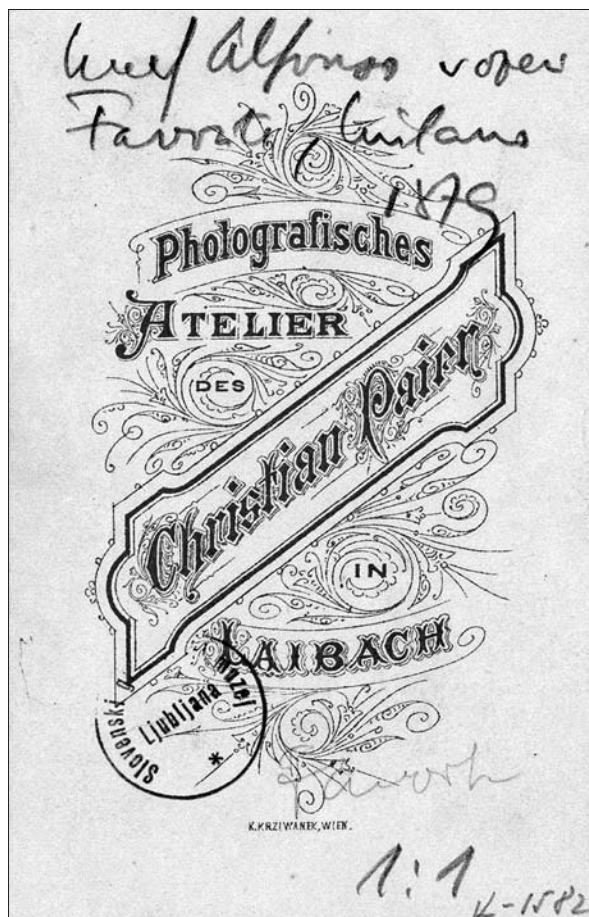 Alfonso
Favorita, Milano
1879
Photografisches
ATELIER
DES
Christian Paier
IN
LAIBACH
Slovenski muzej
Ljubljana
*
K.KRZIWANEK, WIEN.
1:1
K-1582